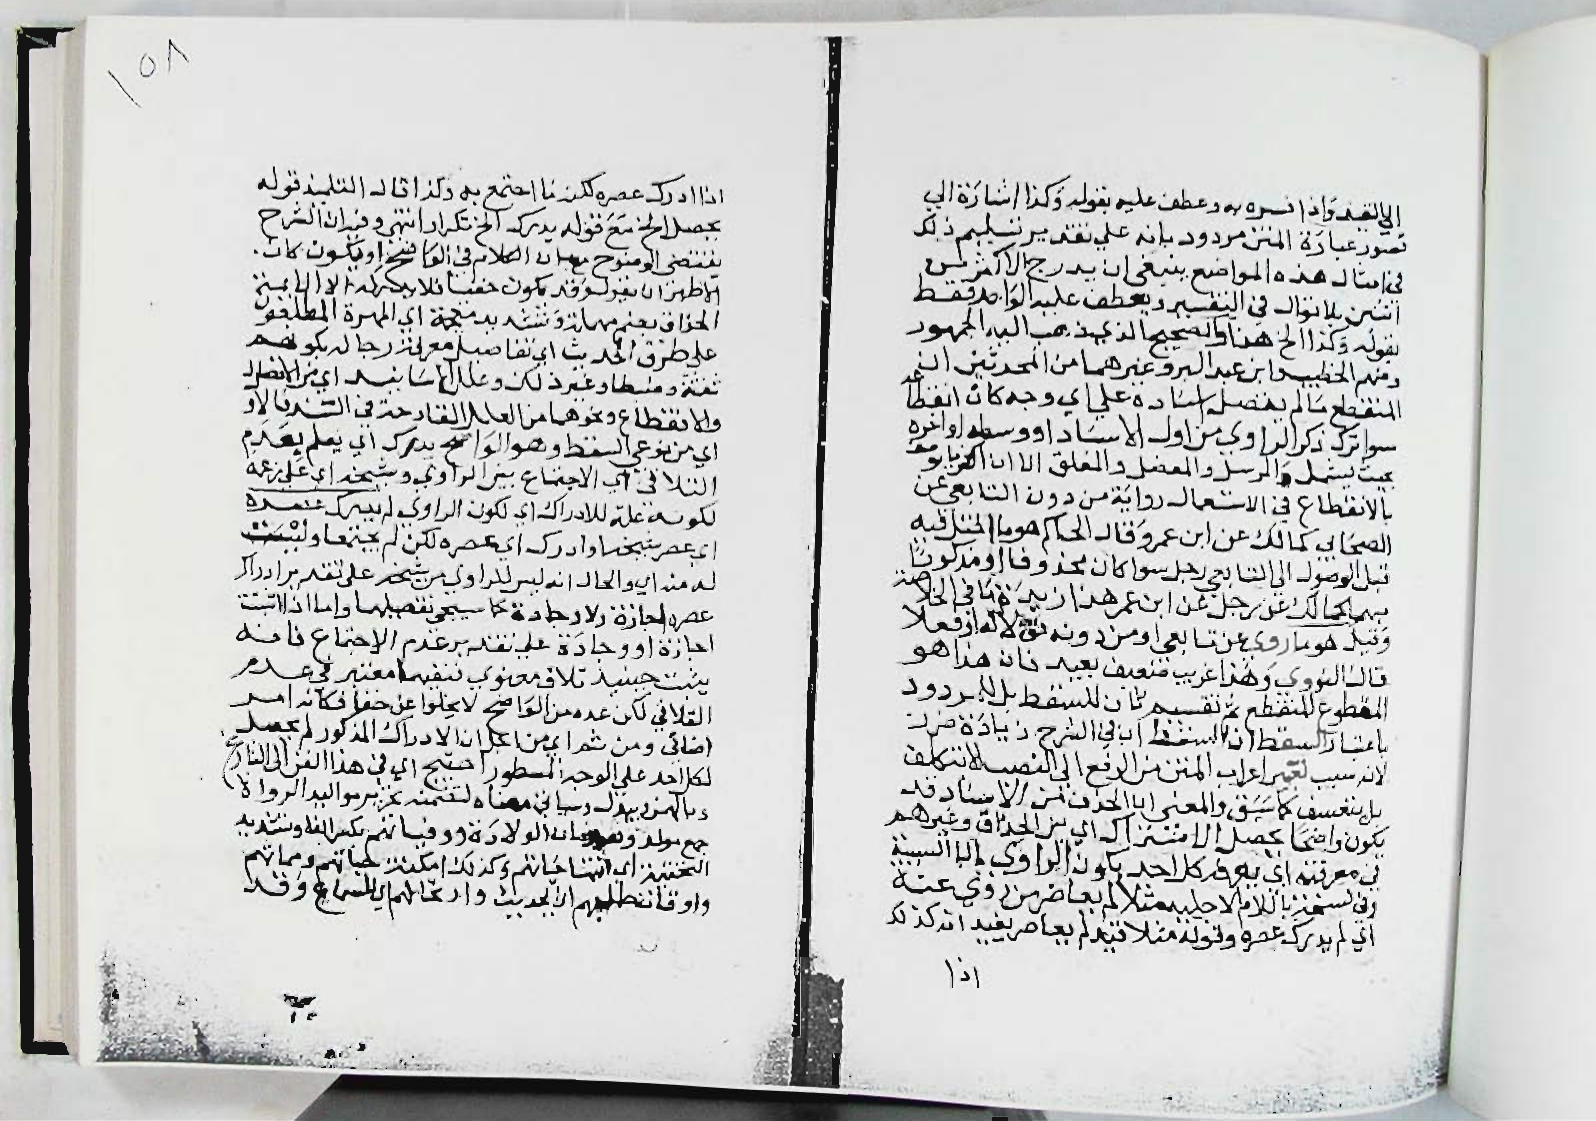 الى القيد واذا فسره به وعطف عليه بقوله وكذا اشارة الي
تصور عبارة المتن مردود بانه على تقدير تسليم ذلك
في امثال هذه المواضع ينبغي ان يدرج الاكثر من
اثنين بلا توال في التفسير ويعطف عليه الواحد فقط
بقوله وكذا الخ هذا والصحيح الذي ذهب اليه الجمهور
ومنهم الخطيب وابن عبد البر وغيرهما من المحدثين ان
المنقطع ما لم يتصل اسناده على اي وجه كان انقطاعه
سوا ترك ذكر الراوي من اول الاسناد او وسطه او اخره
بحيث يشمل المرسل والمعضل والمعلق الا ان اكثر ما يوصف
بالانقطاع في الاستعمال رواية من دون التابعي عن
الصحابي كمالك عن ابن عمر وقال الحاكم هو ما اختل فيه
قبل الوصول الى التابعي رجل سوا كان محذوفا او مذكورا
مبهما كمالك عن رجل عن ابن عمر هذا زبدة ما في الخلاصة
وقيل هو ما روي عن تابعي او من دونه قولا له او فعلا
قال النووي وهذا غريب ضعيف بعيد فان هذا هو
المقطوع لا المنقطع ثم تقسيم ثان للسقط بل للمردود
باعتبار السقط ان السقط ان في الشرح زيادة ضرر
لانه سبب تغير اعراب المتن من الرفع الى النصب لا تتكلف
بل بتعسف كما سبق والمعنى ان الحذف من الاسناد قد
يكون واضحا يحصل الاشتراك اي بين الحذاق وغيرهم
في معرفته اي يعرفه كل احد بكون الراوي بالبا السببية
وفي نسخة باللام الاجلية مثلا لم يعاصر من روى عنه
اي لم يدرك عصره وقوله مثلا قيد لم يعاصر يفيد انه كذلك
اذا
١٥٨
اذا ادرك عصره لكن ما اجتمع به وكذا قال التلميذ قوله
يحصل الخ مع قوله يدرك الخ تكرار انتهى وفيه ان الشرح
يقتضي الوضوح مع ان الكلام في الواضح او يكون كان
الاظهر ان يقول وقد يكون خفيا فلا يدركه الا الائمة
الحذاق بضم مهملة وتشديد معجمة اي المهرة المطلعون
على طرق الحديث اي تفاصيل معرفة رجاله بكونهم
ثقة وضبطا وغير ذلك وعلل الاسانيد اي من الاتصال
والانقطاع ونحوهما من العلل القادحة في السند فالاول
اي من نوعي السقط وهو الواضح يدرك اي يعلم بعدم
التلاقي اي الاجتماع بين الراوي وشيخه اي على زعمه
لكونه علة للادراك اي لكون الراوي لم يدرك عصره
اي عصر شيخه او ادرك اي عصره لكن لم يجتمعا وليست
له منه اي والحال انه ليس للراوي من شيخه على تقدير ادراك
عصره اجازة ولا وجادة كما سيجي تفصيلهما واما اذا اثبتت
اجازة او وجادة على تقدير عدم الاجتماع فانه
يثبت حينئذ تلاق معنوي فنفيهما معتبر في عدم
التلاقي لكن عده من الواضح لا يخلوا عن خفا فكأنه امر
اضافي ومن ثم اي من اجل ان الادراك المذكور لم يحصل
لكل احد على الوجه المسطور احتيج اي في هذا الفن الى التاريخ
وبالهمز ويبدل وسياتي معناه لتضمنه تحرير مواليد الرواة
جمع مولد وهو زمان الولادة ووفياتهم بكسر الفا وتشديد
التحتية اي انتها حياتهم وكذلك امكنة حياتهم ومماتهم
واوقات طلبهم اي الحديث وارتحالهم اي للسماع وقد